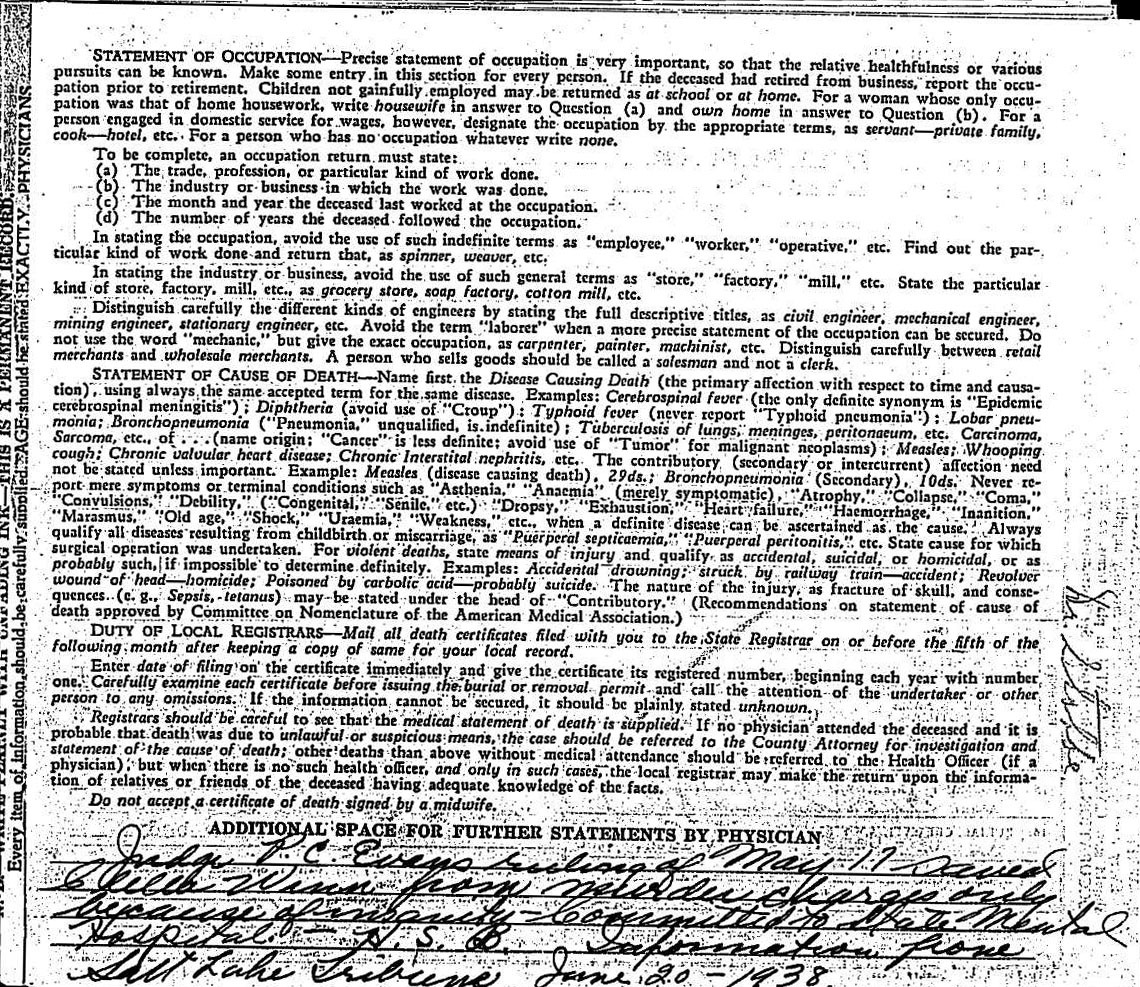 STATEMENT OF OCCUPATION—Precise statement of occupation is very important, so that the relative healthfulness or various
pursuits can be known. Make some entry in this section for every person. If the deceased had retired from business, report the occu-
pation prior to retirement. Children not gainfully employed may be returned as at school or at home. For a woman whose only occu-
pation was that of home housework, write housewife in answer to Question (a) and own home in answer to Question (b). For a
person engaged in domestic service for wages, however, designate the occupation by the appropriate terms, as servant—private family,
cook—hotel, etc. For a person who has no occupation whatever write none.
To be complete, an occupation return must state:
(a) The trade, profession, or particular kind of work done.
(b) The industry or business in which the work was done.
(c) The month and year the deceased last worked at the occupation.
(d) The number of years the deceased followed the occupation.
In stating the occupation, avoid the use of such indefinite terms as "employee," "worker," "operative," etc. Find out the par-
ticular kind of work done and return that, as spinner, weaver, etc.
In stating the industry or business, avoid the use of such general terms as "store," "factory," "mill," etc. State the particular
kind of store, factory, mill, etc., as grocery store, soap factory, cotton mill, etc.
Distinguish carefully the different kinds of engineers by stating the full descriptive titles, as civil engineer, mechanical engineer,
mining engineer, stationary engineer, etc. Avoid the term "laborer" when a more precise statement of the occupation can be secured. Do
not use the word "mechanic," but give the exact occupation, as carpenter, painter, machinist, etc. Distinguish carefully between retail
merchants and wholesale merchants. A person who sells goods should be called a salesman and not a clerk.
STATEMENT OF CAUSE OF DEATH—Name first the Disease Causing Death (the primary affection with respect to time and causa-
tion), using always the same accepted term for the same disease. Examples: Cerebrospinal fever (the only definite synonym is "Epidemic
cerebrospinal meningitis"); Diphtheria (avoid use of "Croup"); Typhoid fever (never report "Typhoid pneumonia"); Lobar pneu-
monia; Bronchopneumonia ("Pneumonia," unqualified, is indefinite); Tuberculosis of lungs, meninges, peritonaeum, etc. Carcinoma,
Sarcoma, etc., of . . . (name origin; "Cancer" is less definite; avoid use of "Tumor" for malignant neoplasms); Measles; Whooping
cough; Chronic valvular heart disease; Chronic Interstital nephritis, etc. The contributory (secondary or intercurrent) affection need
not be stated unless important. Example: Measles (disease causing death), 29ds.; Bronchopneumonia (Secondary), 10ds. Never re-
port mere symptoms or terminal conditions such as "Asthenia," "Anaemia" (merely symptomatic), "Atrophy," "Collapse," "Coma,"
"Convulsions," "Debility," ("Congenital," "Senile," etc.) "Dropsy," "Exhaustion," "Heart failure," "Haemorrhage," "Inanition,"
"Marasmus," "Old age," "Shock," "Uraemia," "Weakness," etc., when a definite disease can be ascertained as the cause. Always
qualify all diseases resulting from childbirth or miscarriage, as "Puerperal septicaemia," "Puerperal peritonitis," etc. State cause for which
surgical operation was undertaken. For violent deaths, state means of injury and qualify as accidental, suicidal, or homicidal, or as
probably such, if impossible to determine definitely. Examples: Accidental drowning; struck by railway train—accident; Revolver
wound of head—homicide; Poisoned by carbolic acid—probably suicide. The nature of the injury, as fracture of skull, and conse-
quences (e. g., Sepsis, tetanus) may be stated under the head of "Contributory." (Recommendations on statement of cause of
death approved by Committee on Nomenclature of the American Medical Association.)
DUTY OF LOCAL REGISTRARS—Mail all death certificates filed with you to the State Registrar on or before the fifth of the
following month after keeping a copy of same for your local record.
Enter date of filing on the certificate immediately and give the certificate its registered number, beginning each year with number
one. Carefully examine each certificate before issuing the burial or removal permit and call the attention of the undertaker or other
person to any omissions. If the information cannot be secured, it should be plainly stated unknown.
Registrars should be careful to see that the medical statement of death is supplied. If no physician attended the deceased and it is
probable that death was due to unlawful or suspicious means, the case should be referred to the County Attorney for investigation and
statement of the cause of death; other deaths than above without medical attendance should be referred to the Health Officer (if a
physician), but when there is no such health officer, and only in such cases, the local registrar may make the return upon the informa-
tion of relatives or friends of the deceased having adequate knowledge of the facts.
Do not accept a certificate of death signed by a midwife.
ADDITIONAL SPACE FOR FURTHER STATEMENTS BY PHYSICIAN
Judge P. C. Evans ruling of May 17 saved
Winn from murder charges only
because of insanity – Committed to State Mental
Hospital. — H. S. B. Information from
Salt Lake Tribune June 20 – 1938.
WRITE PLAINLY WITH UNFADING INK—THIS IS A PERMANENT RECORD.
Every item of information should be carefully supplied. AGE should be stated EXACTLY. PHYSICIANS